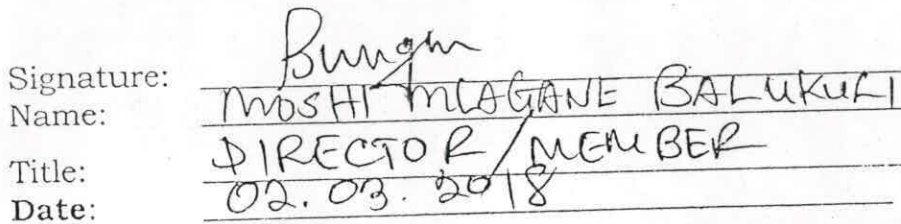 Signature:
Name: MOSHI MLAGANE BALUKULI
Title: DIRECTOR / MEMBER
Date: 02.03.2018